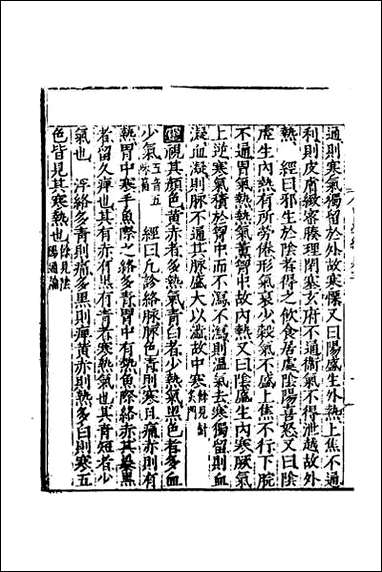 通則寒氣獨留於外故寒慄又曰陽盛生外熱上焦不通
利則皮膚緻密腠理閉塞玄府不通衛氣不得泄越故外
熱 經曰邪生於陰者得之飲食居處陰陽喜怒又曰陰
虛生內熱有所勞倦形氣衰少穀氣不盛上焦不行下脘
不通胃氣熱熱氣薰胷中故內熱又曰陰盛生內寒厥氣
上逆寒氣積於胷中而不瀉不瀉則溫氣去寒獨留則血
凝血凝則脉不通其脉盛大以濇故中寒
經視其顏色黃赤者多熱氣青白者少熱氣黑色者多血
少氣 經曰凡診絡脉脉色青則寒且痛赤則有
熱胃中寒手魚際之絡多青胃中有熱魚際絡赤其暴黑
者留久痺也其有赤有黑有青者寒熱氣也其青短者少
氣也 浮絡多青則痛多黑則痺黃赤則熱多白則寒五
色皆見其寒熱也